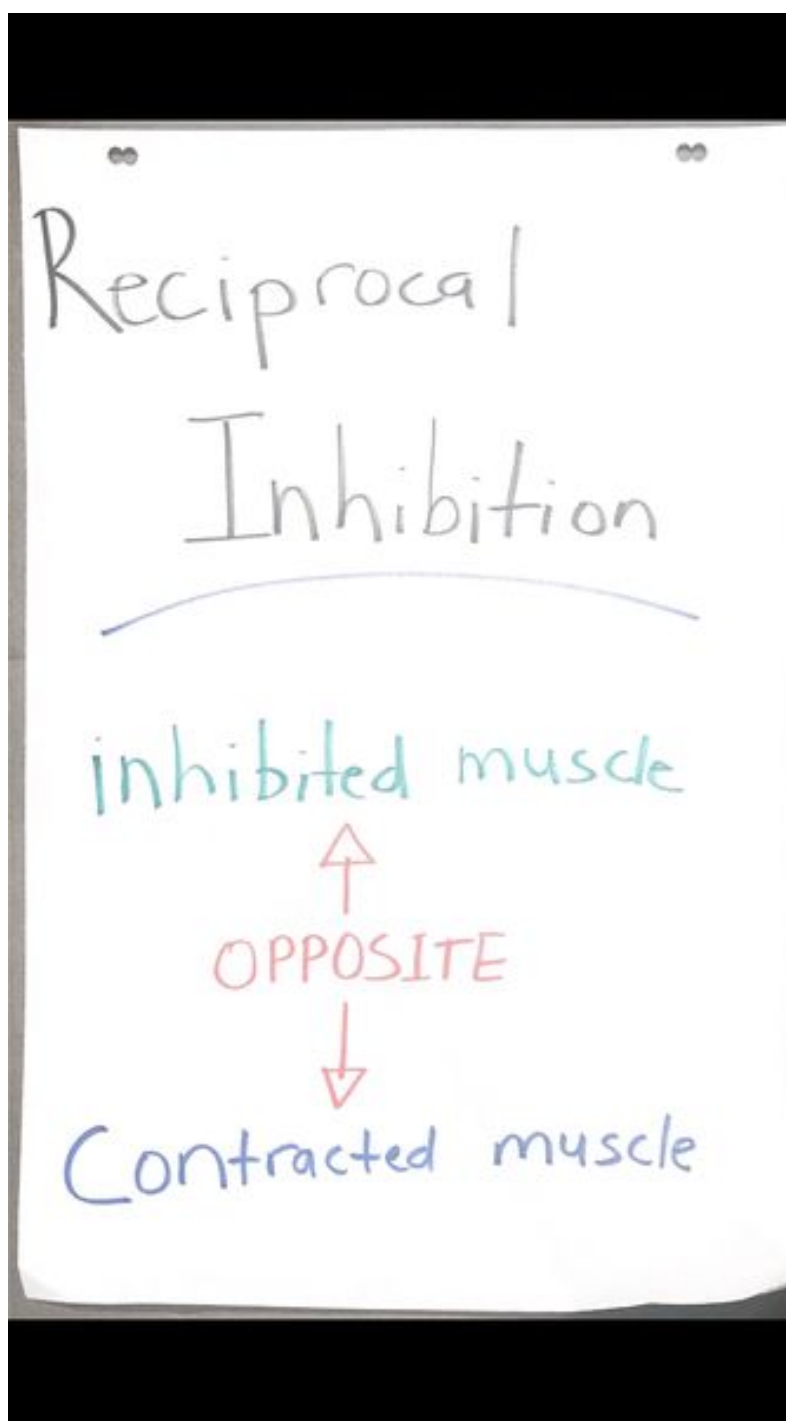 Reciprocal
Inhibition
inhibited muscle
OPPOSITE
Contracted muscle